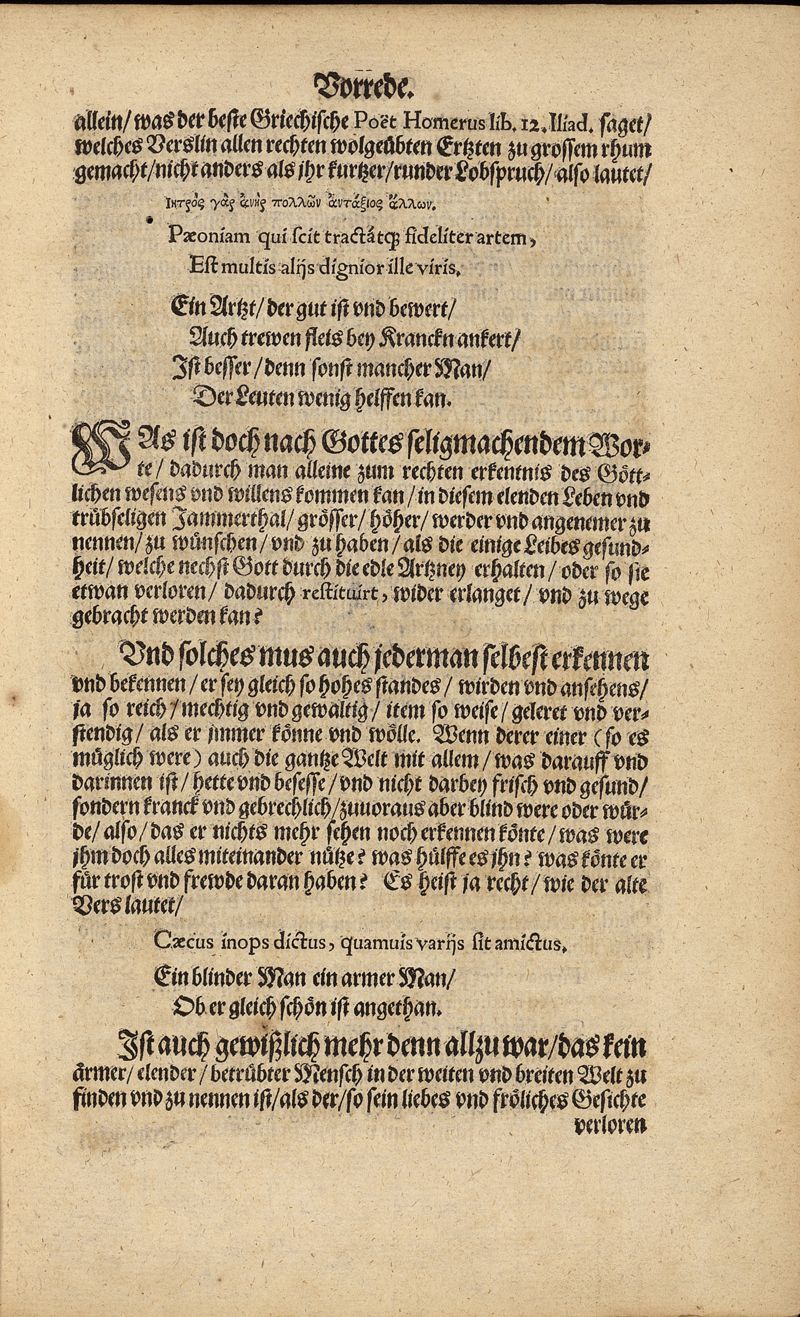 Vorrede.
allein/ was der beste Griechische Poët Homerus lib. 12. Iliad. saget/
welches Verslin allen rechten wolgeübten Ertzten zu grossem rhum
gemacht/ nicht anders als jhr kurtzer/ runder Lobspruch/ also lautet/
Ιητρὸς γὰρ ἀνὴρ πολλῶν ἀντάξιος ἄλλων.
Pæoniam qui scit tractátq; fideliter artem,
Est multis alijs dignior ille viris.
Ein Artzt/ der gut ist vnd bewert/
Auch trewen fleis bey Kranckn ankert/
Ist besser/ denn sonst mancher Man/
Der Leuten wenig helffen kan.
WAs ist doch nach Gottes seligmachendem Wor-
te/ dadurch man alleine zum rechten erkentnis des Gött-
lichen wesens vnd willens kommen kan/ in diesem elenden Leben vnd
trübseligen Jammerthal/ grösser/ höher/ werder vnd angenemer zu
nennen/ zu wünschen/ vnd zu haben/ als die einige Leibes gesund-
heit/ welche nechst Gott durch die edle Artzney erhalten/ oder so sie
etwan verloren/ dadurch restituirt, wider erlanget/ vnd zu wege
gebracht werden kan?
Vnd solches mus auch jederman selbest erkennen
vnd bekennen/ er sey gleich so hohes standes/ wirden vnd ansehens/
ja so reich/ mechtig vnd gewaltig/ item so weise/ geleret vnd ver-
stendig/ als er jmmer könne vnd wölle. Wenn derer einer (so es
müglich were) auch die gantze Welt mit allem/ was darauff vnd
darinnen ist/ hette vnd besesse/ vnd nicht darbey frisch vnd gesund/
sondern kranck vnd gebrechlich/ zuuoraus aber blind were oder wür-
de/ also/ das er nichts mehr sehen noch erkennen könte/ was were
jhm doch alles miteinander nütze? was hülffe es jhn? was könte er
für trost vnd frewde daran haben? Es heist ja recht/ wie der alte
Vers lautet/
Cæcus inops dictus, quamuis varijs sit amictus.
Ein blinder Man ein armer Man/
Ob er gleich schön ist angethan.
Ist auch gewißlich mehr denn allzu war/ das kein
ärmer/ elender/ betrübter Mensch in der weiten vnd breiten Welt zu
finden vnd zu nennen ist/ als der/ so sein liebes vnd fröliches Gesichte
verloren